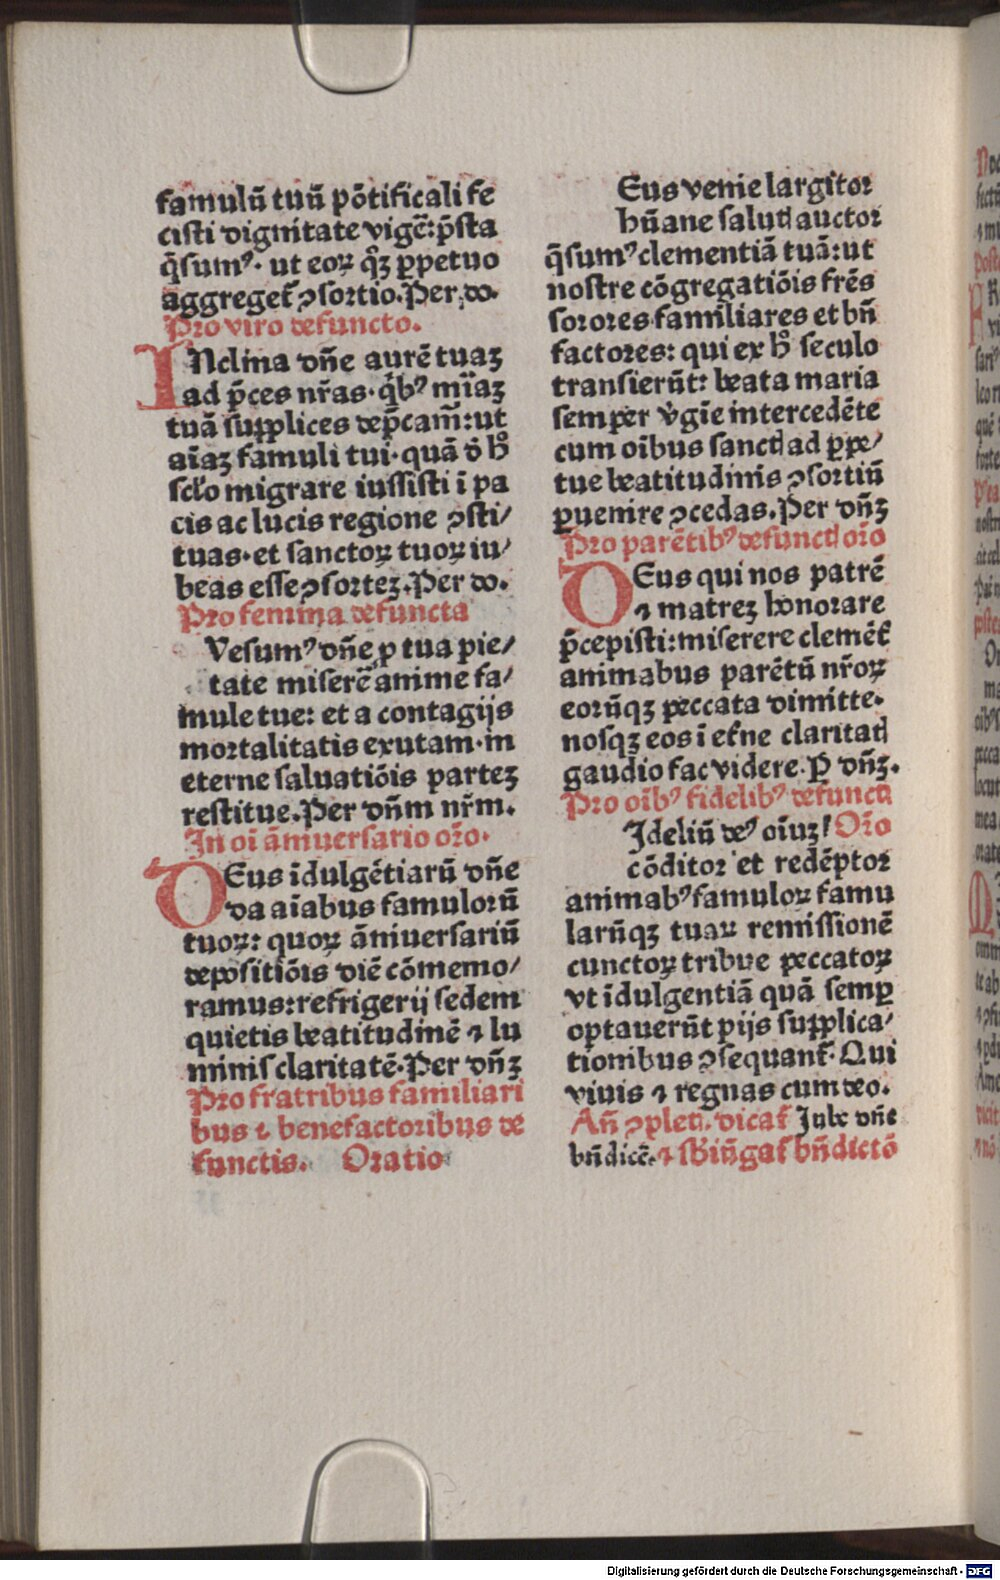 famulū tuū pōtificali fe
cisti dignitate vigē: p̄sta
q̄sumꝰ· ut eoꝝ qꝫ ꝑpetuo
aggreget̄ ꝯsortio. Per do.
Pro viro defuncto.
INclina dn̄e aurē tuaꝫ
ad p̄ces nr̄as· qͥbꝰ mīaꝫ
tuā supplices dep̄cam̄: ut
aīaꝫ famuli tui· quā ð hͦ
sc̄lo migrare iussisti ī pa
cis ac lucis regione ꝯsti/
tuas· et sanctoꝝ tuoꝝ iu/
beas esse ꝯsorteꝫ. Per do.
Pro femina defuncta
Vesumꝰ dn̄e ꝑ tua pie/
tate miserē anime fa/
mule tue: et a contagijs
mortalitatis exutam· in
eterne saluatiōis parteꝫ
restitue. Per dn̄m nr̄m.
In oī āniuersario or̄o.
DEus īdulgētiarū dn̄e
da aīabus famulorū
tuoꝝ: quoꝝ āniuersariū
depositiōis diē cōmemo/
ramus: refrigerij sedem
quietis beatitudinē ⁊ lu
minis claritatē. Per dn̄ꝫ
Pro fratribus familiari
bus ⁊ benefactoribus de
functis. Oratio
Eus venie largitor
hūane salutꝭ auctor
q̄sumꝰ clementiā tuā: ut
nostre cōgregatiōis frēs
sorores familiares et bn̄
factores: qui ex hͦ seculo
transierūt: beata maria
semper v̄gīe intercedēte
cum oībus sanctꝭ ad ꝑpe/
tue beatitudinis ꝯsortiū
ꝑuenire ꝯcedas. Per dn̄ꝫ
Pro parētibꝰ defunctꝭ or̄o
DEus qui nos patrē
⁊ matreꝫ honorare
p̄cepisti: miserere clemēt̄
animabus parētū nr̄oꝝ
eorūqꝫ peccata dimitte·
nosqꝫ eos ī et̄ne claritatꝭ
gaudio fac videre. Ꝑ dn̄ꝫ.
Pro oībꝰ fidelibꝰ defunctꝭ
Ideliū deꝰ oīuꝫ Or̄o
cōditor et redēptor
animabꝰ famuloꝝ famu
larūqꝫ tuaꝝ remissionē
cunctoꝝ tribue peccatoꝝ
vt īdulgentiā quā semꝑ
optauerūt pijs supplica/
tionibus ꝯsequant̄. Qui
viuis ⁊ regnas cum deo.
An̄ ꝯplet̄. dicat̄ Jube dn̄e
bn̄dicē. ⁊ sbiūgat̄ bn̄dictō
Digitalisierung gefördert durch die Deutsche Forschungsgemeinschaft - DFG